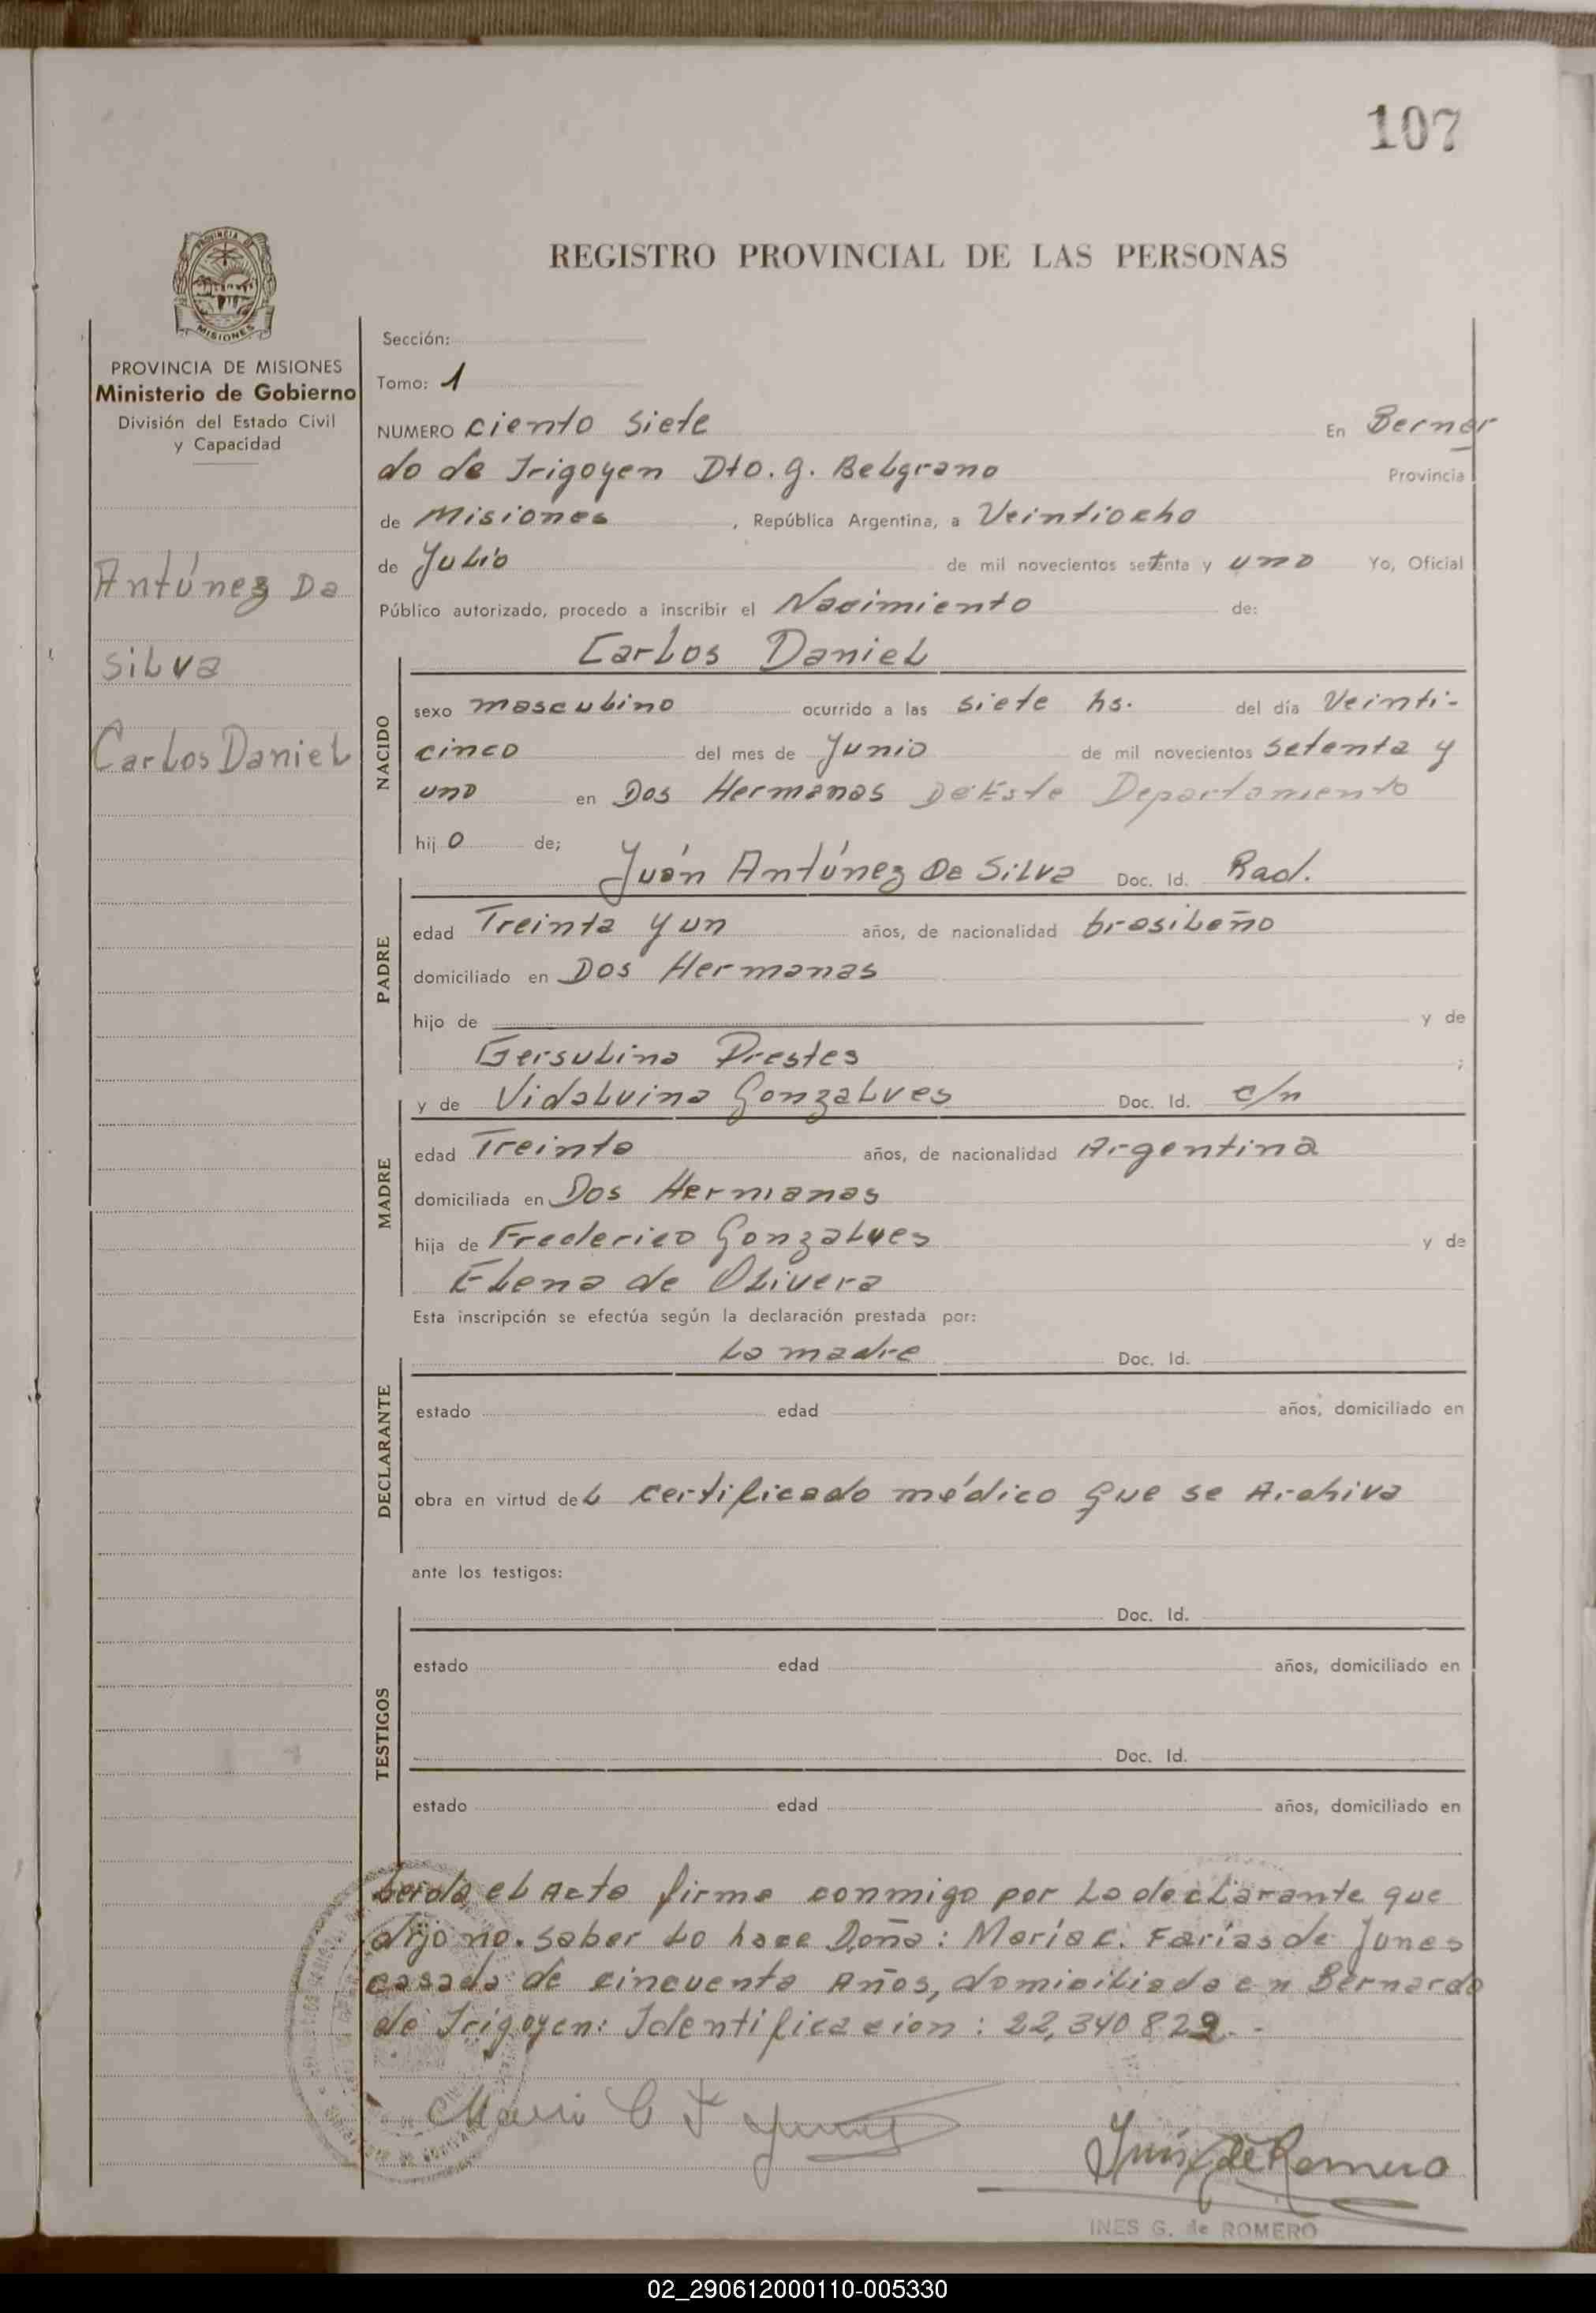 107
REGISTRO PROVINCIAL DE LAS PERSONAS
PROVINCIA DE
MISIONES
PROVINCIA DE MISIONES
Ministerio de Gobierno
División del Estado Civil
y Capacidad
Antúnez Da
Silva
Carlos Daniel
Sección:
Tomo: 1
NUMERO ciento siete En Bernar
do de Irigoyen Dto. g. Belgrano Provincia
de Misiones, República Argentina, a Veintiocho
de Julio de mil novecientos setenta y uno Yo, Oficial
Público autorizado, procedo a inscribir el Nacimiento de:
Carlos Daniel
NACIDO
sexo masculino ocurrido a las siete hs. del día Veinti-
cinco del mes de Junio de mil novecientos setenta y
uno en Dos Hermanas De Este Departamento
hijo de;
Juán Antúnez De Silva Doc. Id. Rad.
PADRE
edad Treinta y un años, de nacionalidad brasileño
domiciliado en Dos Hermanas
hijo de y de
Gersulina Prestes ;
y de Vidalvina Gonzalves Doc. Id. c/n
MADRE
edad Treinta años, de nacionalidad Argentina
domiciliada en Dos Hermanas
hija de Frederico Gonzalves y de
Elena de Olivera
Esta inscripción se efectúa según la declaración prestada por:
La madre Doc. Id.
DECLARANTE
estado edad años, domiciliado en
obra en virtud del certificado médico que se Archiva
ante los testigos:
Doc. Id.
TESTIGOS
estado edad años, domiciliado en
Doc. Id.
estado edad años, domiciliado en
Leida el Acta firma conmigo por La declarante que
dijo no saber Lo hace Doña: María C. Farías de Junes
casada de cincuenta Años, domiciliada en Bernardo
de Irigoyen: Identificacion: 22,340822.-
Maria C F
Inés G de Romero
INES G. de ROMERO
02_290612000110-005330